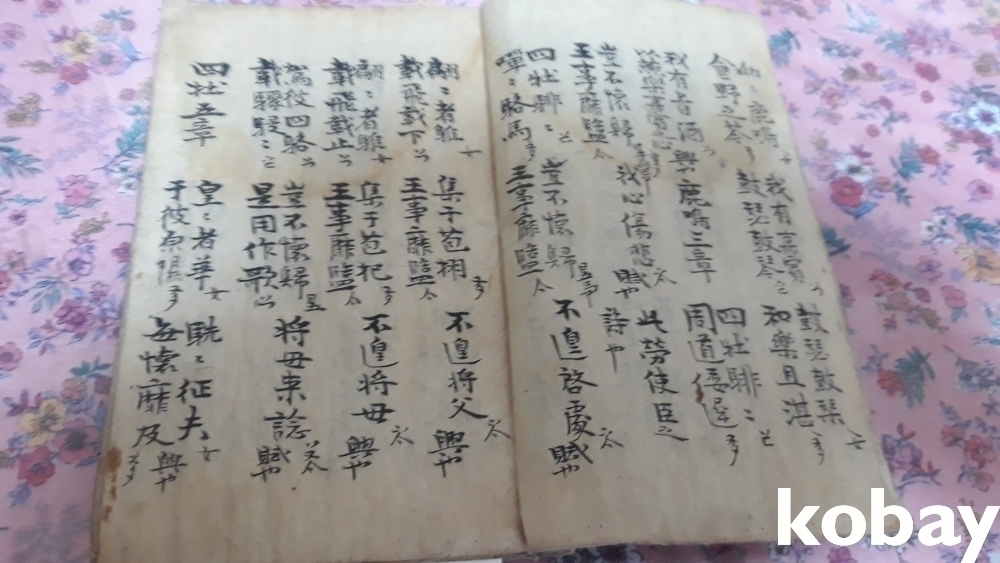 呦〻鹿鳴 我有嘉賓 鼓瑟鼓琴
食野之芩 鼓瑟鼓琴 和樂且湛
我有旨酒 興 鹿鳴三章 四牡騑〻
燕樂嘉賓心 周道倭遲
豈不懷歸 我心傷悲 賦也 此勞使臣之
王事靡盬 詩也
四牡騑〻 豈不懷歸 不遑啓處 賦也
嘽〻駱馬 王事靡盬
翩〻者鵻 集于苞栩 不遑將父 興也
載飛載下 王事靡盬
翩〻者鵻 集于苞杞 不遑將母 興也
載飛載止 王事靡盬
駕彼四駱 豈不懷歸 將母來諗 賦也
載驟駸〻 是用作歌
四牡五章 皇〻者華 駪〻征夫
于彼原隰 每懷靡及 興也
kobay